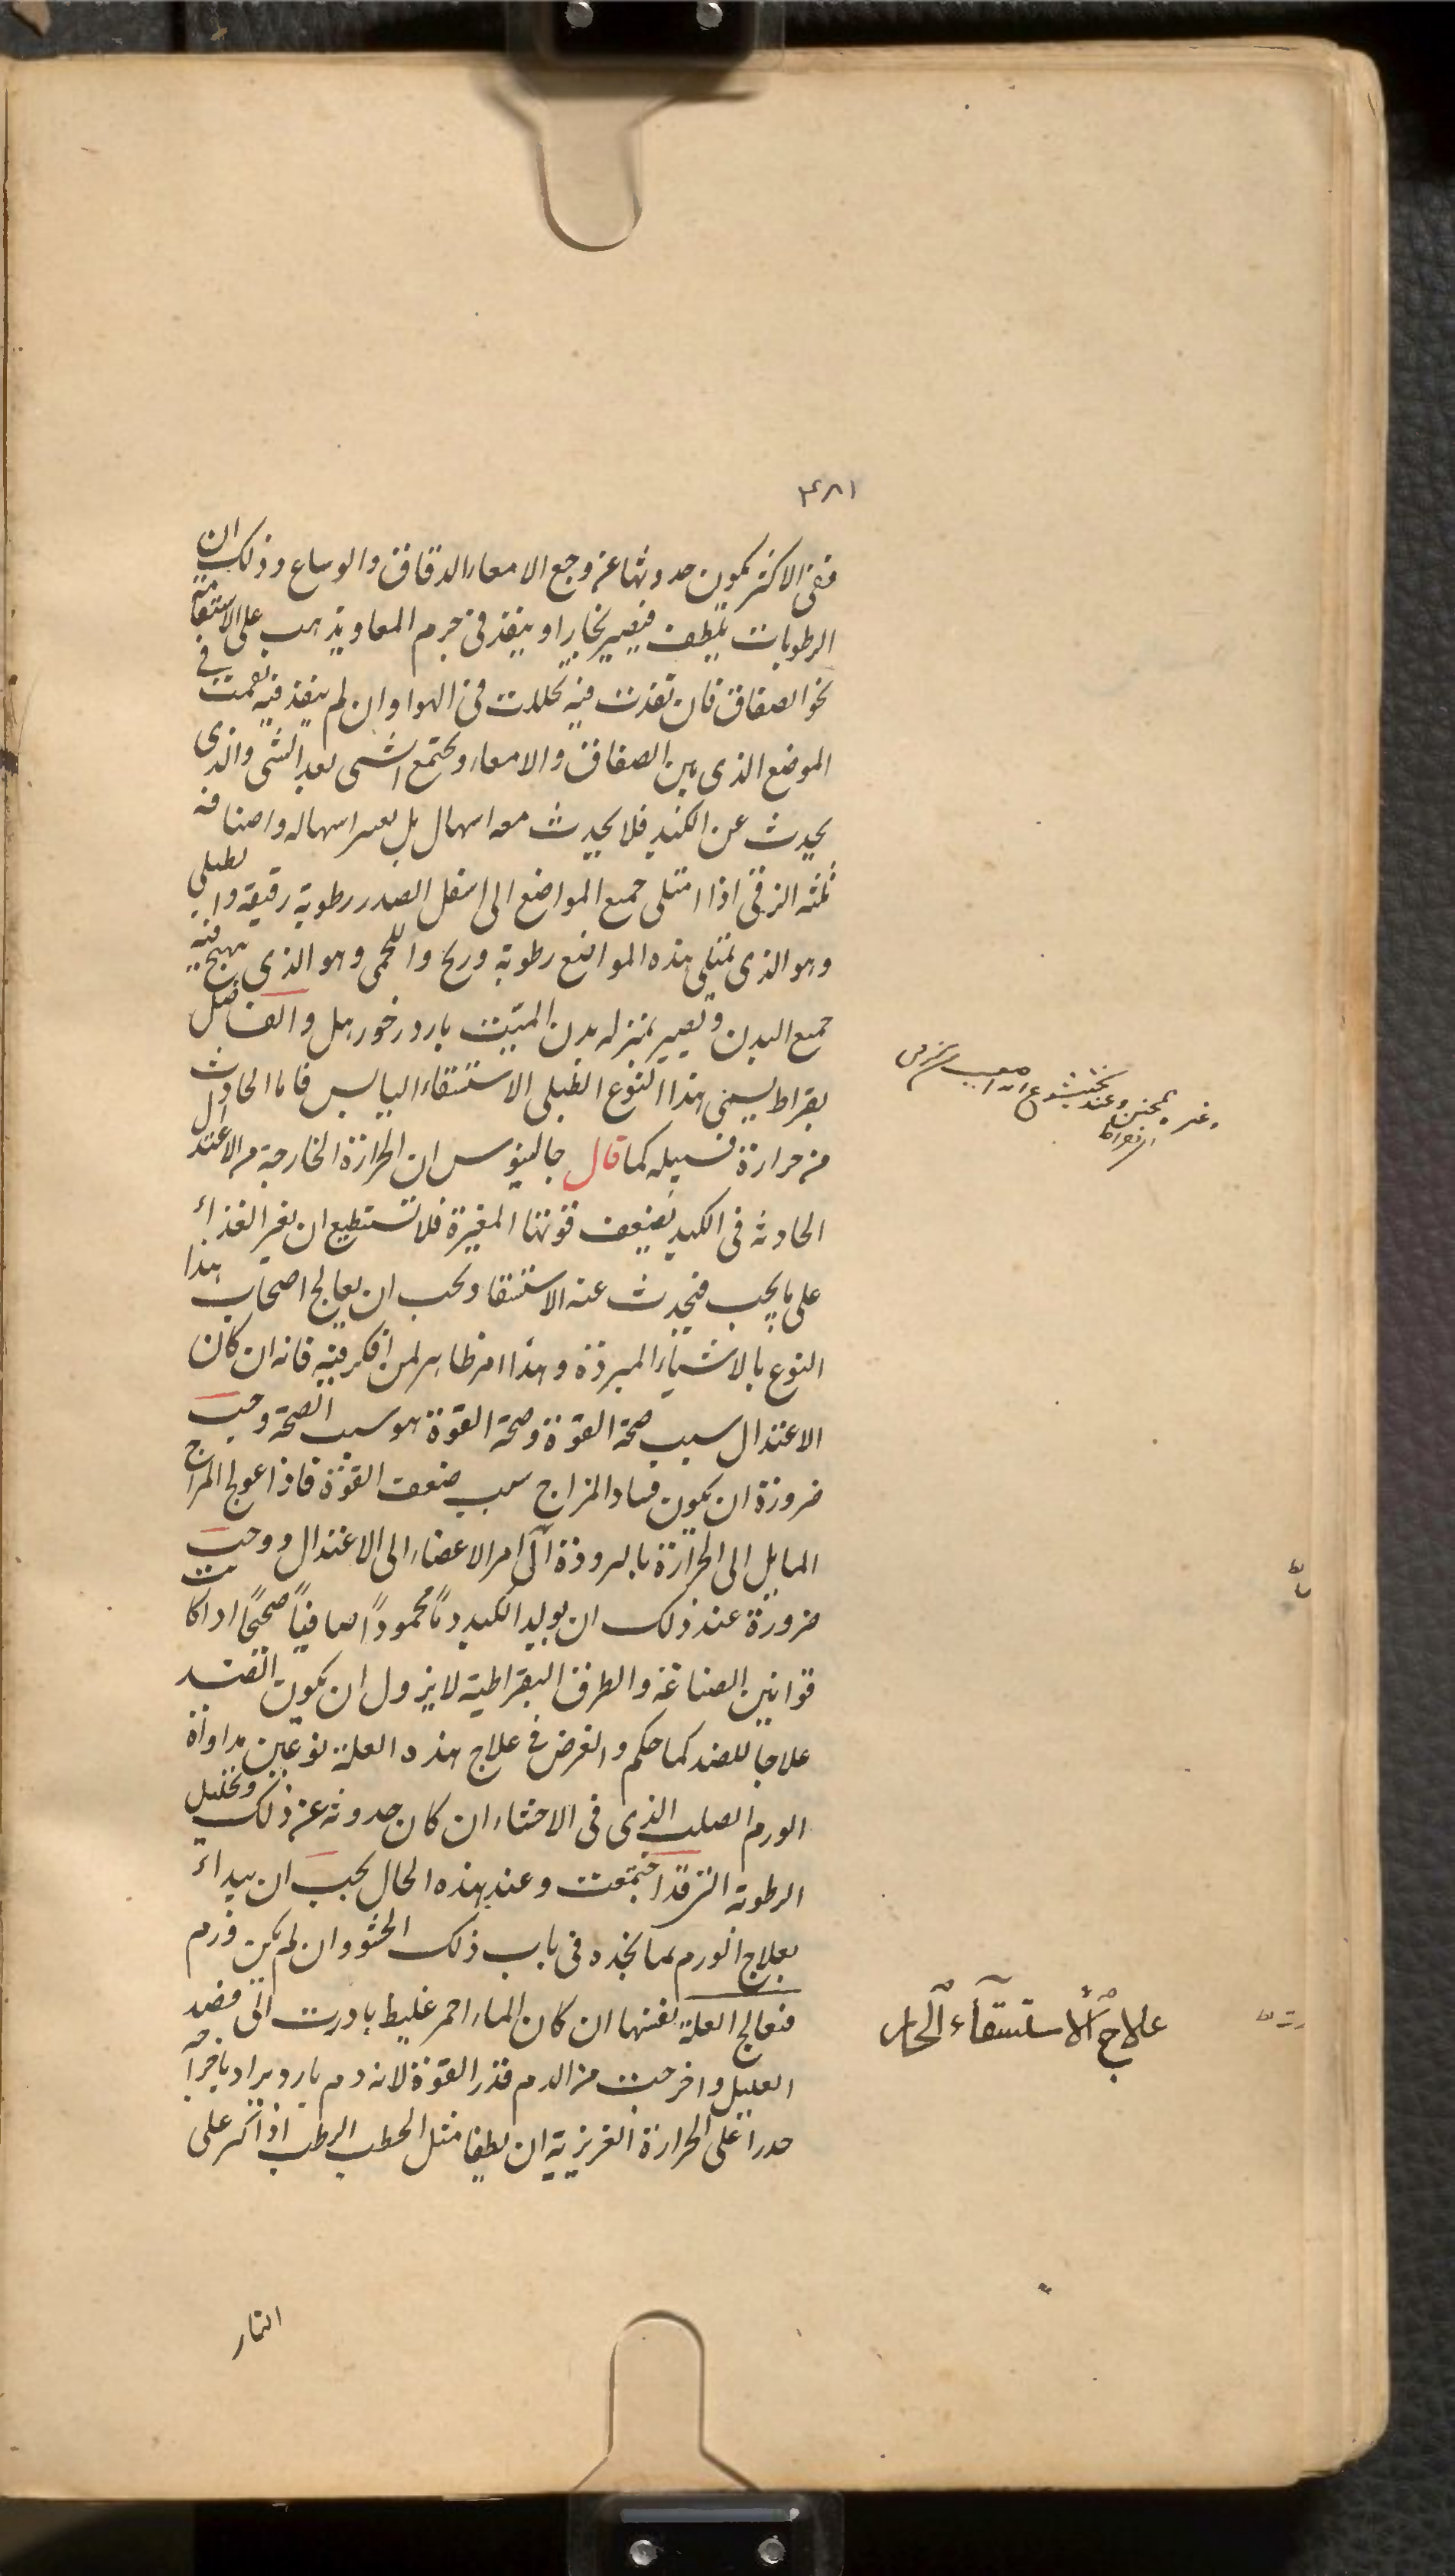 ٣٨١
ففى الاكثر يكون حدوثها عن وجع الامعاء الدقاق والوساع وذلك ان
الرطوبات تلطف فيصير بخارا وينفذ فى جرم المعا ويذهب على الاستقامة
نحو الصفاق فان نفذت فيه تحللت فى الهوا وان لم ينفذ فيه بقيت فى
الموضع الذى بين الصفاق والامعاء ويجتمع الشى بعد الشى والذى
يحدث عن الكبد فلا يحدث معه اسهال بل يعسر اسهاله واصنافه
ثلثه الزقى اذا امتلى جميع المواضع الى اسفل الصدر رطوبة رقيقة والطبلى
وهو الذى يمتلى هذه المواضع رطوبة وريح واللحمى وهو الذى يتهيج فيه
جميع البدن وتصير بمنزله بدن الميت بارد رخو رهل والفاضل
بقراط يسمى هذا النوع الطبلى الاستسقاء اليابس فاما الحادث
من حرارة فسبيله كما قال جالينوس ان الحرارة الخارجة من الاعتدال
الحادثه فى الكبد يضعف قوتها المغيرة فلا تستطيع ان يغير الغذاء
على ما يجب فيحدث عنه الاستسقا ويجب ان يعالج اصحاب هذا
النوع بالاشياء المبردة وهذا امر ظاهر لمن افكر فيه فانه ان كان
الاعتدال سبب صحة القوة وصحة القوة هو سبب الصحة وجب
ضرورة ان يكون فساد المزاج سبب ضعف القوة فاذا عولج المزاج
المايل الى الحرارة بالبرودة آل امر الاعضاء الى الاعتدال ووجب
ضرورة عند ذلك ان يوليد الكبد دمًا محمودًا صافيًا صحيحًا اذا كانت
قوانين الصناعة والطرق البقراطية لا يزول ان يكون الضد
علاجا للضد كما حكم والغرض فى علاج هذه العلة نوعين مداواة
الورم الصلب الذى فى الاحشاء ان كان حدوثه عن ذلك وتحليل
الرطوبة التى قد اجتمعت وعند هذه الحال يجب ان يبداء
بعلاج الورم بما تجده فى باب ذلك الحشو وان لم يكن ورم
فتعالج العلة نفسها ان كان الماء احمر غليظ بادرت الى فصد
العليل واخرجت من الدم قدر القوة لانه دم بارد يراد باخراجه
حدرا على الحرارة الغريزية ان يطفا مثل الحطب الرطب اذا كسر على
علاج الاستسقاء الحار
النار